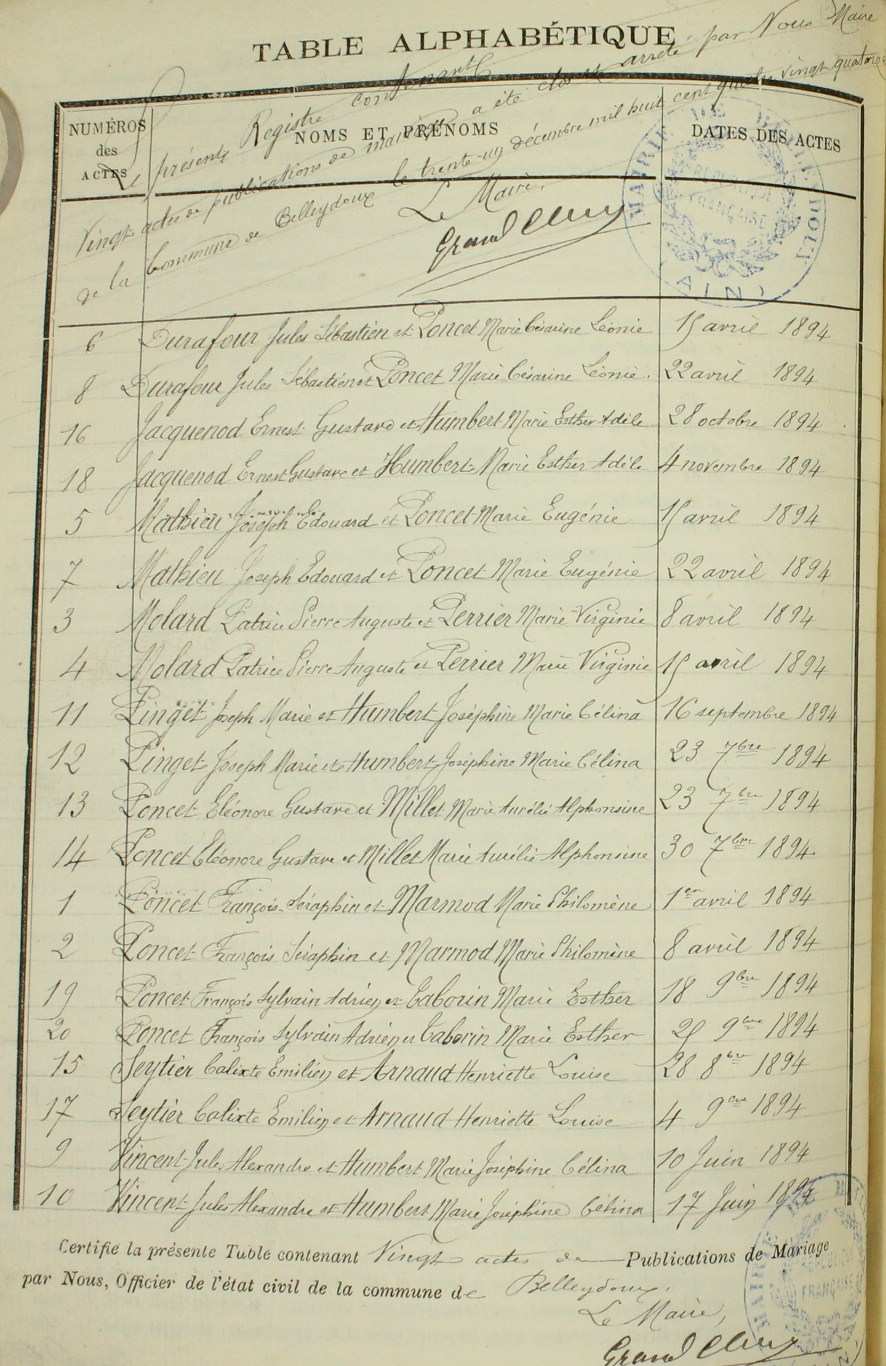 TABLE ALPHABÉTIQUE
Le présent Registre contenant
Vingt actes de publications de mariage a été clos et arrêté par Nous Maire
de la Commune de Belleydoux le trente-un décembre mil huit cent quatre vingt quatorze
Le Maire,
Grand Clément
NUMÉROS des ACTES NOMS ET PRÉNOMS DATES DES ACTES
MAIRIE DE BELLEYDOUX
RÉPUBLIQUE FRANÇAISE
(AIN)
6 Durafour Jules Sébastien et Poncet Marie Césarine Léonie 15 avril 1894
8 Durafour Jules Sébastien et Poncet Marie Césarine Léonie. 22 avril 1894
16 Jacquenod Ernest Gustave et Humbert Marie Esther Adèle 28 octobre 1894
18 Jacquenod Ernest Gustave et Humbert Marie Esther Adèle 4 novembre 1894
5 Mathieu Joseph Edouard et Poncet Marie Eugénie 15 avril 1894
7 Mathieu Joseph Edouard et Poncet Marie Eugénie 22 avril 1894
3 Molard Patrice Pierre Auguste et Perrier Marie Virginie 8 avril 1894
4 Molard Patrice Pierre Auguste et Perrier Marie Virginie 15 avril 1894
11 Pinget Joseph Marie et Humbert Joséphine Marie Célina 16 septembre 1894
12 Pinget Joseph Marie et Humbert Joséphine Marie Célina 23 7bre 1894
13 Poncet Eléonore Gustave et Millet Marie Aurélie Alphonsine 23 7bre 1894
14 Poncet Eléonore Gustave et Millet Marie Aurélie Alphonsine 30 7bre 1894
1 Poncet François Séraphin et Marmod Marie Philomène 1er avril 1894
2 Poncet François Séraphin et Marmod Marie Philomène 8 avril 1894
19 Poncet François Sylvain Adrien et Caborin Marie Esther 18 9bre 1894
20 Poncet François Sylvain Adrien et Caborin Marie Esther 25 9bre 1894
15 Seytier Calixte Emilien et Arnaud Henriette Louise 28 8bre 1894
17 Seytier Calixte Emilien et Arnaud Henriette Louise 4 9bre 1894
9 Vincent Jules Alexandre et Humbert Marie Joséphine Célina 10 Juin 1894
10 Vincent Jules Alexandre et Humbert Marie Joséphine Célina 17 Juin 1894
Certifie la présente Table contenant Vingt actes de Publications de Mariage
par Nous, Officier de l'état civil de la commune de Belleydoux.
Le Maire,
Grand Clément